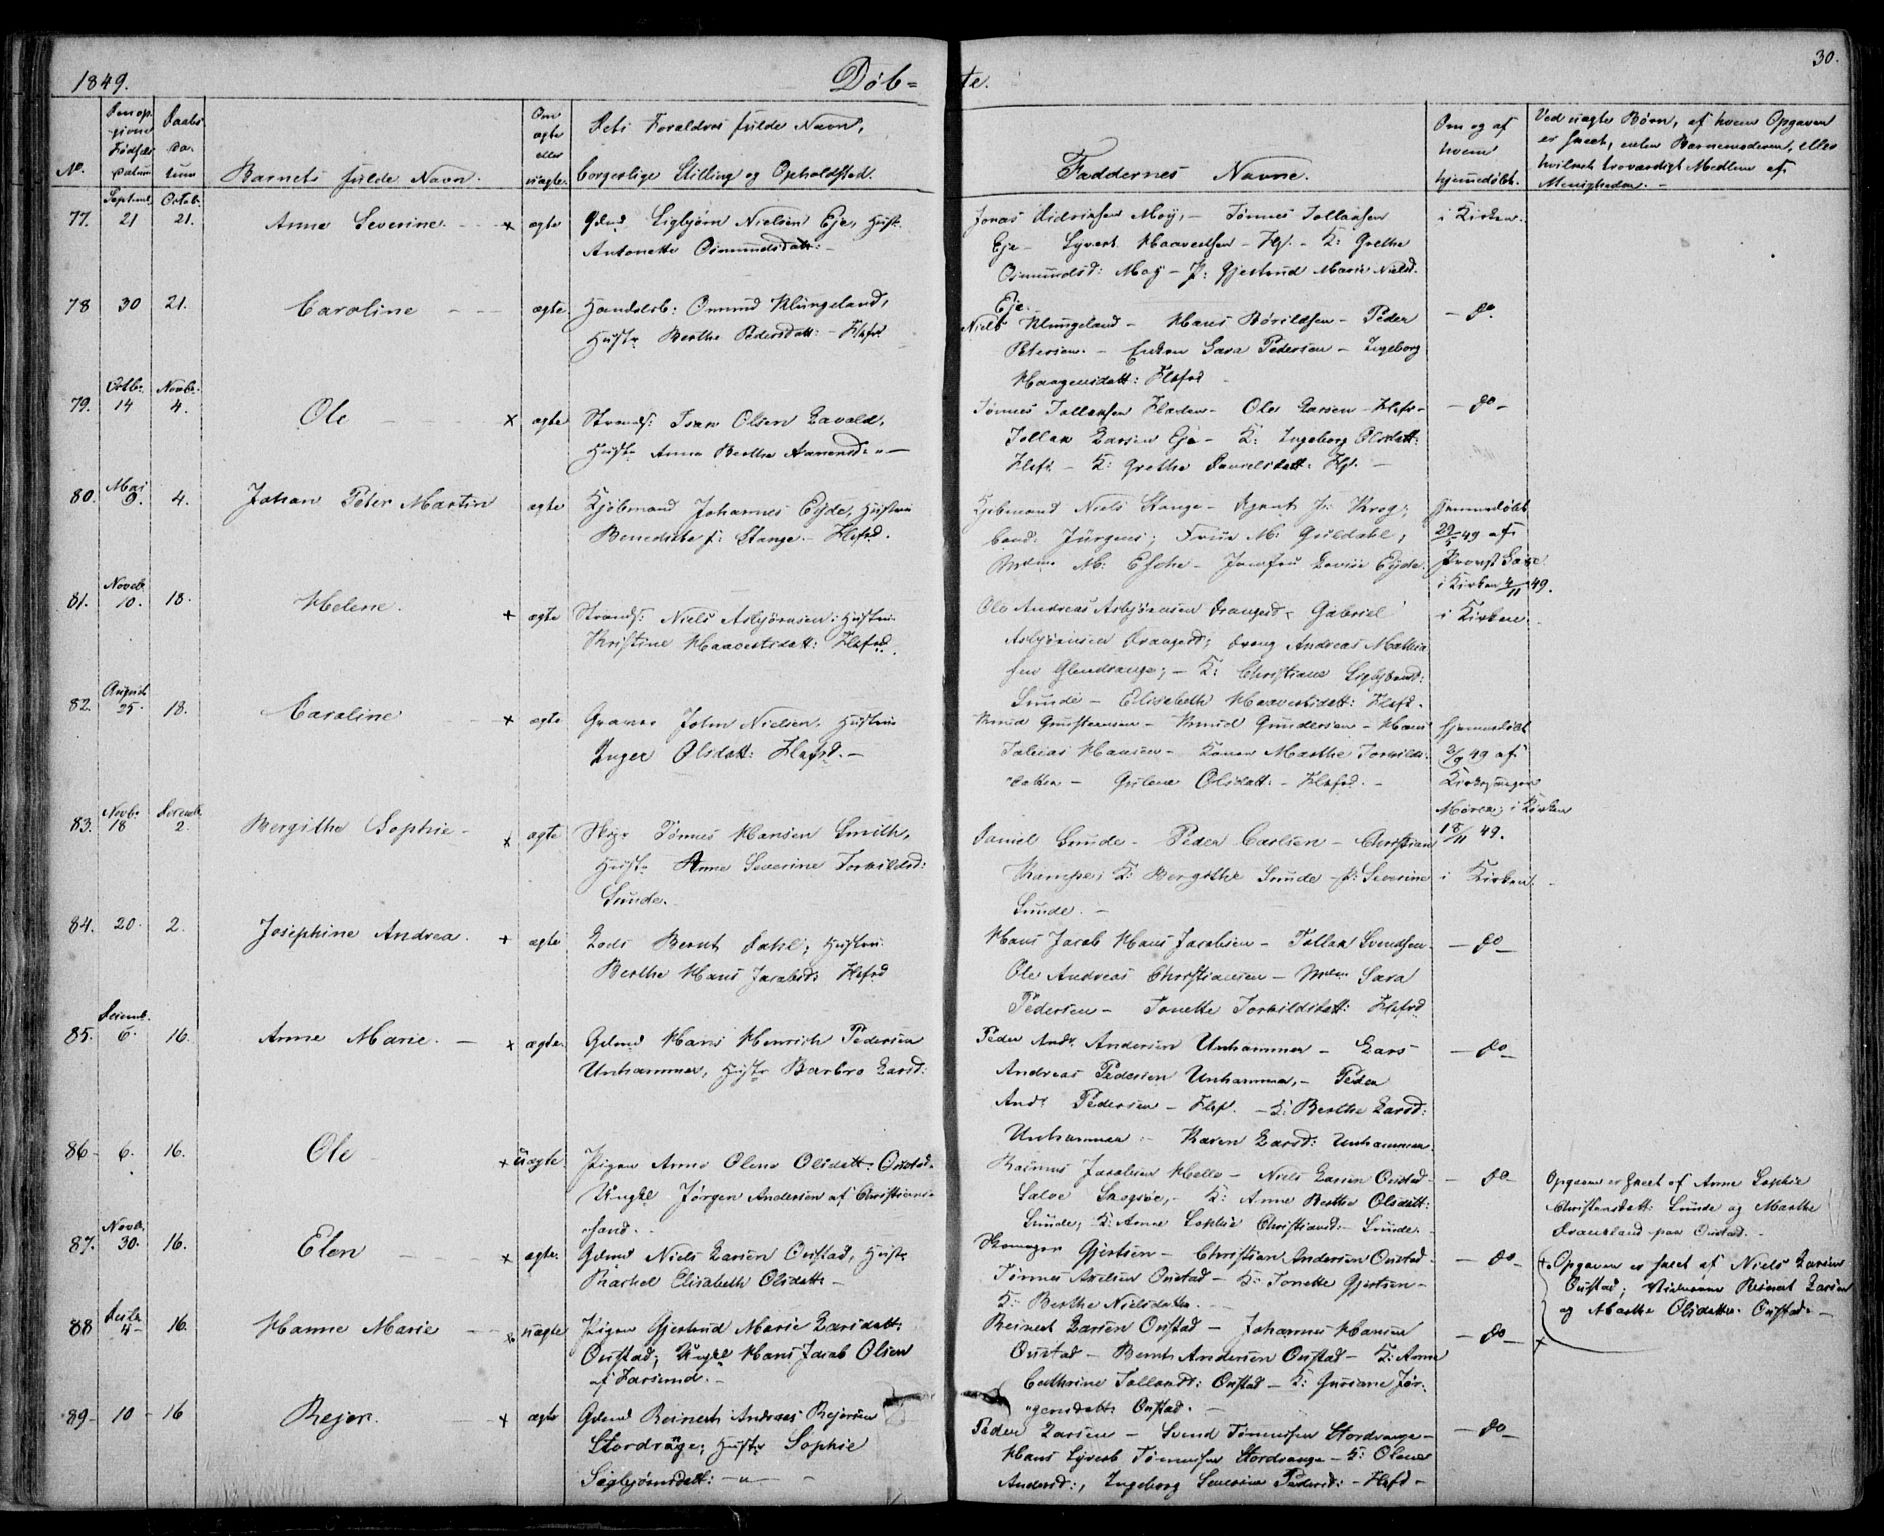 1849.
Døb-
te.
30.
No.
Den op-
givne
Fødsels
datum
Daabs
da-
tum
Barnets fulde Navn.
Om
ægte
eller
uægte.
Dets Forældres fulde Navn,
borgerlige Stilling og Opholdsted.
Faddernes Navne.
Om og af
hvem
hjemmedøbt.
Ved uægte Børn, af hvem Opgaven
er skeet, enten Barnemoderen, eller
hvilket troværdigt Medlem af
Menigheden. -
Septemb. Octob.
77. 21 21. Anne Severine. - + ægte Gdmd Sigbjørn Nielsen Eje, Hust.
Antonette Osmundsdatt: -
Jonas Didriksen Moÿ, - Tønnes Tollaksen
Eje - Syvert Haavertsen - Hf. - K: Grethe
Osmundsd: Moÿ - P: Gjertrud Marie Nielsd.
Eje.
i Kirken.
78 30 21. Caroline - - ægte Handelsb: Omund Klungeland,
Hustr Berthe Pedersdatt: - Flefd
Niels Klungeland - Hans Børildsen - Peder
Petersen. - Enken Sara Pedersen - Ingeborg
Haagensdatt: Flefd -
- do.
Octbr. Novbr.
79. 14 4. Ole - + ægte Strands: Ivar Olsen Lavold,
Hustr Anne Berthe Aanensd: " -
Tønnes Tollaksen Fladen - Ole Larsen - Flefd -
Tollak Larsen Eje - K: Ingeborg Olsdatt:
Flefd - K: Grethe Danielsdatt: Flf. -
- do -
Mai
80. 9. 4. Johan Peter Martin ægte Kjøbmand Johannes Eÿde, Hustru
Benedicte f: Stange - Flefd.
Kjøbmand Niels Stange - Agent J: Krog;
Jürgens; Frue M: Guldahl,
Mdme M: Esche - Jomfru Lovise Eÿde.
Hjemmedøbt
29/5 49 af
Provst
i Kirken 4/11 49.
Novb.
81. 10. 18. Helene. + ægte Strands: Niels Asbjørnsen: Hustru
Kristine Haavertsdatt: Flefd.
Ole Andreas Asbjørnsen Drangsd - Gabriel
Asbjørnsen Drangsd; Dreng Andreas Mathia
sen Glendrange; - K: Christiane Sigbjørnsd:
Sunde - Elisabeth Haavertsdatt: Flefd.
i Kirken.
August
82. 25. 18. Caroline - + ægte Graver John Nielsen. Hustru
Inger Olsdatt: Flefd. -
Knud Gunstensen - Knud Gundersen - Hans
Tobias Hansen - Konen Marthe Torkilds-
datter - Gulene Olsdatt: - Flefd. -
Hjemmedøbt
2/9 49 af
Kirkesanger
Møren; i Kirken
18/11 49.
Novb. Decemb.
83. 18 2. Bergithe Sophie - + ægte Skpr Tønnes Hansen Smith,
Hustr Anne Severine Torkildsd:
Sunde.
Daniel Sunde - Peder Carlsen - Christian
Kampe; K: Bergithe Sunde - P: Severine
Sunde. -
i Kirken. -
84. 20. 2. Josephine Andrea. + ægte Lods Bernt Dahl; Hustru
Berthe Hans Jacobsd: Flefd
Hans Jacob Hans Jacobsen - Tollak Svendsen
Ole Andreas Christiansen - Mdm Sara
Pedersen - Tonette Torkildsdatt: Flefd
- do -
Decemb.
85. 6. 16. Anne Marie. - + ægte. Gdmd Hans Henrich Pedersen
Unhammer, Hustr Barbro Larsd:
Peder Andr. Andersen Unhammer - Lars
Andreas Pedersen Unhammer, - Peder
Andr. Pedersen - Flef. - K: Berthe Larsd:
Unhammer - Karen Larsd: Unhammer.
- do -
86 6. 16. Ole - + uægte. Pigen Anne Olene Olsdatt: Onstad -
Ungkl Jørgen Andersen af Christians-
sand. -
Rasmus Jacobsen Helle - Niels Larsen Onstad -
Salve Skogsøe, - K: Anne Berthe Olsdatt:
Sunde; K: Anne Sophie Christiansd: - Sunde.
- do -
Opgaven er skeet af Anne Sophie
Christensdatt: Sunde og Marthe
Drausland paa Onstad. -
Novb.
87. 30. 16. Elen - + ægte. Gdmd Niels Larsen Onstad, Hustr
Rachel Elisabeth Olsdatt: -
Gjertsen - Christian Andersen Onstad -
Tønnes Axelsen Onstad - K: Tonette Gjertsen -
K: Berthe Nielsdatter. -
- do -
+ Opgaven er skeet af Niels Larsen
Onstad; Vidnerne Reinert Larsen
og Marthe Olsdatter Onstad. -
+
Decbr.
88 4 16. Hanne Marie - + uægte Pigen Gjertrud Marie Larsdatt:
Onstad; Ungkl Hans Jacob Olsen
af Farsund. -
Reinert Larsen Onstad - Johannes Hansen
Onstad - Bernt Andersen Onstad - K: Anne
Cathrine Tollaksd: Onstad - K: Guriane Jør-
gensdatt: Onstad. -
- do -
89 - 10 - 16 Rejer. + ægte Gdmd Reinert Andreas Rejersen
Stordrange; Hustr Sophie
Sigbjørnsdatt: - " -
Peder Larsen - Svend Tønnesen Stordrange -
Hans Syvert Tønnesen Stordrange - K: Olene
Andersd:, Ingeborg Severine Pedersd: - Flefd -
- do -